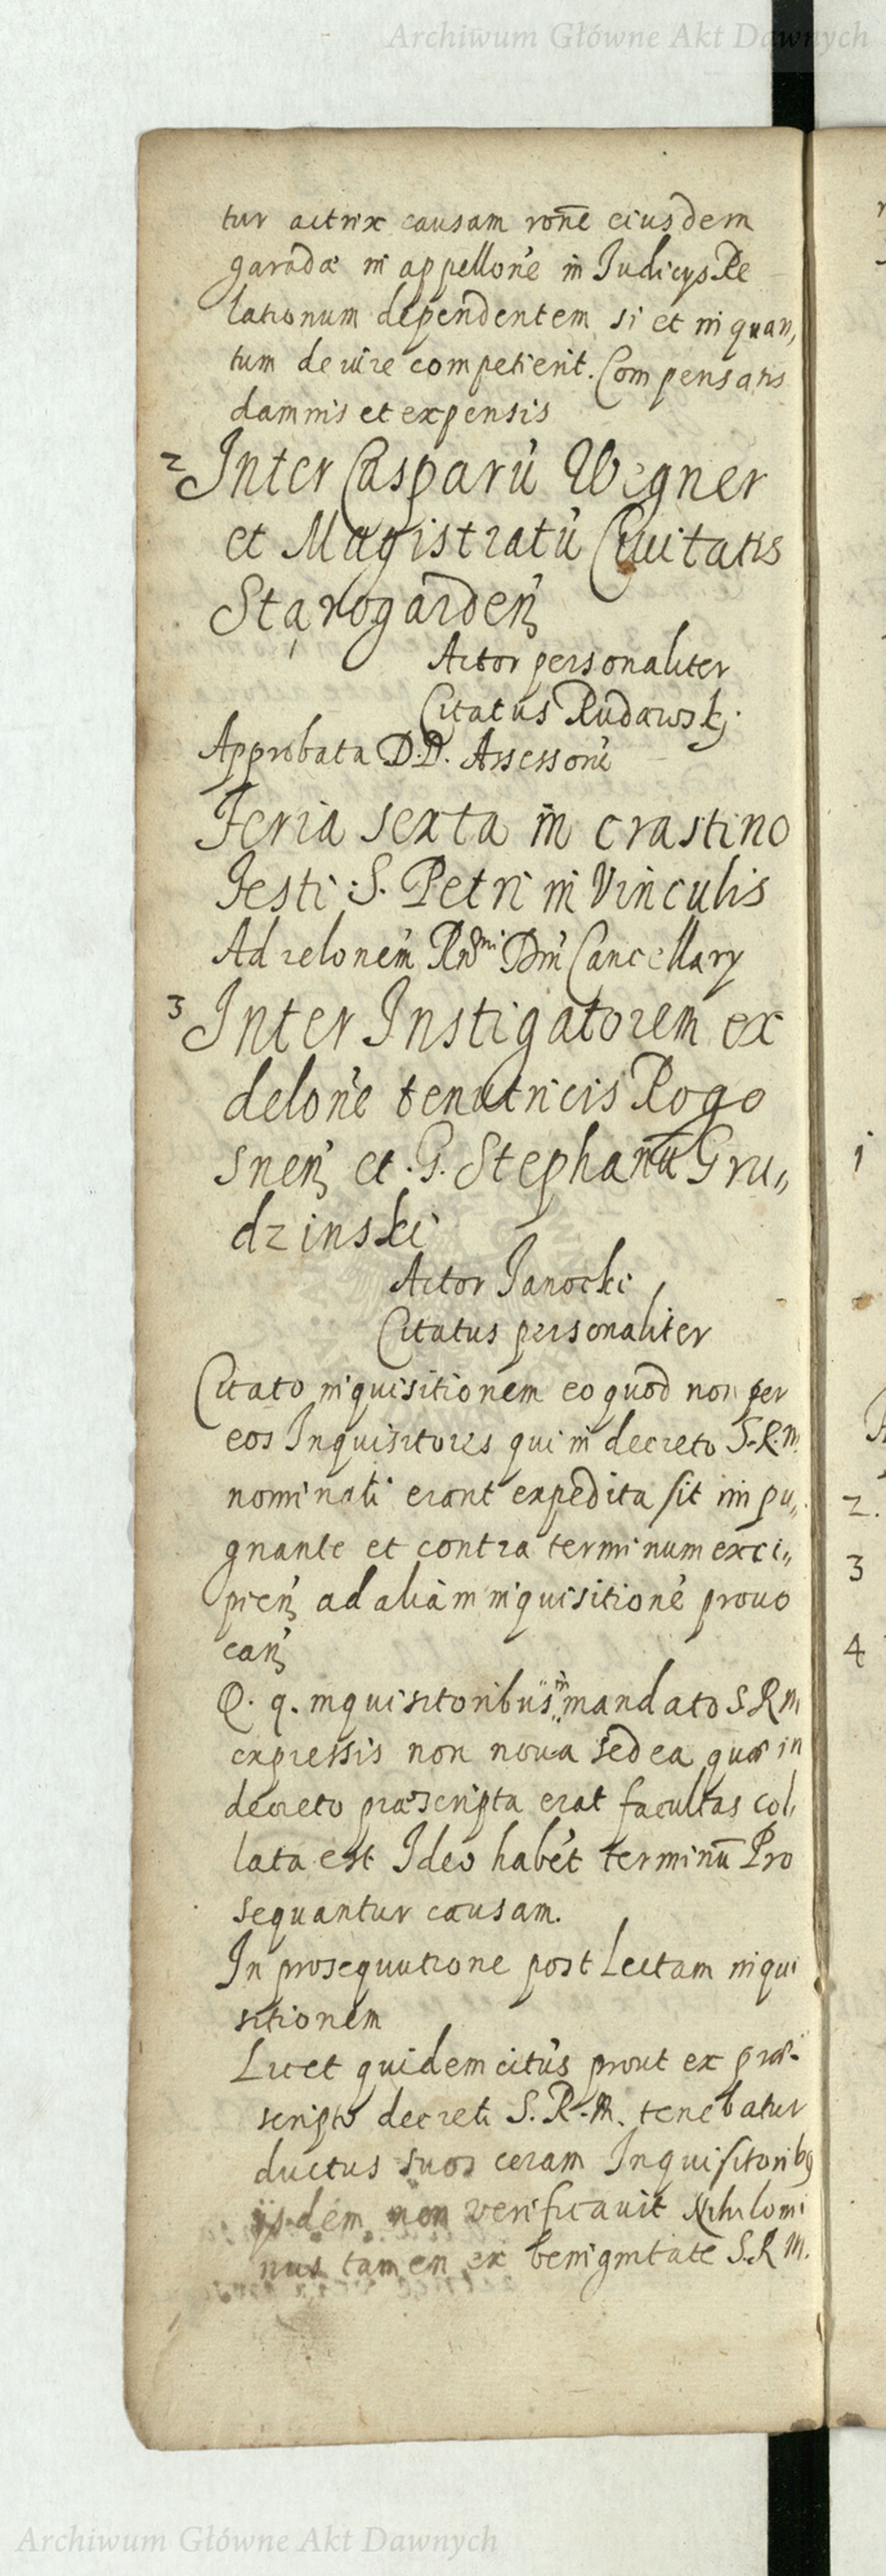 Archiwum Główne Akt Dawnych
tur actrix causam ronē eiusdem
garadæ in appellon̄e in Judicys Re
lationum dependentem si et in quan,
tum de iure competierit. Compensatis
damnis et expensis
2 Inter Casparū Wegner
et Magistratū Civitatis
Starogarden̄
Actor personaliter
Citatus Rudawskj.
Approbata D.D. Assessorū
Feria sexta in crastino
Festi S. Petri in Vinculis
Ad relonem̄ Rndmi Dn̄i Cancellary
3 Inter Instigatorem ex
delon̄e tenutricis Rogo
snen̄ et G. Stephanū Gru,,
dzinski
Actor Janocki
Citatus personaliter
Citato inquisitionem eo quod non per
eos Inquisitores qui in decreto S.R.M.
nominati erant expedita sit impu,,
gnante et contra terminum exci,,
pien̄ ad aliam inquisitionē provo
can̄
Q. q. inquisitoribus in mandato S R M
expressis non nova sed ea quæ in
decreto præscripta erat facultas col,
lata est Ideo habēt terminū Pro
sequantur causam.
In prosequutione post Lectam inqui
sitionem
Licet quidem citūs prout ex præ-
scripto decreti S. R. M. tenebatur
ductus suos coram Inquisitoribus
ijsdem non verificavit Nihilomi
nus tamen ex benignitate S.R M.
1
2.
3
4
Archiwum Główne Akt Dawnych